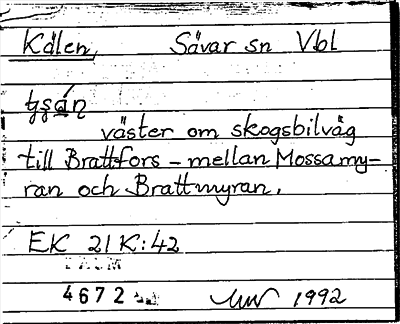 Kälen, Sävar sn Vbl
väster om skogsbilväg
till Brattfors - mellan Mossamy-
ran och Brattmyran.
EK 21K:42
DAUM
4672
1992